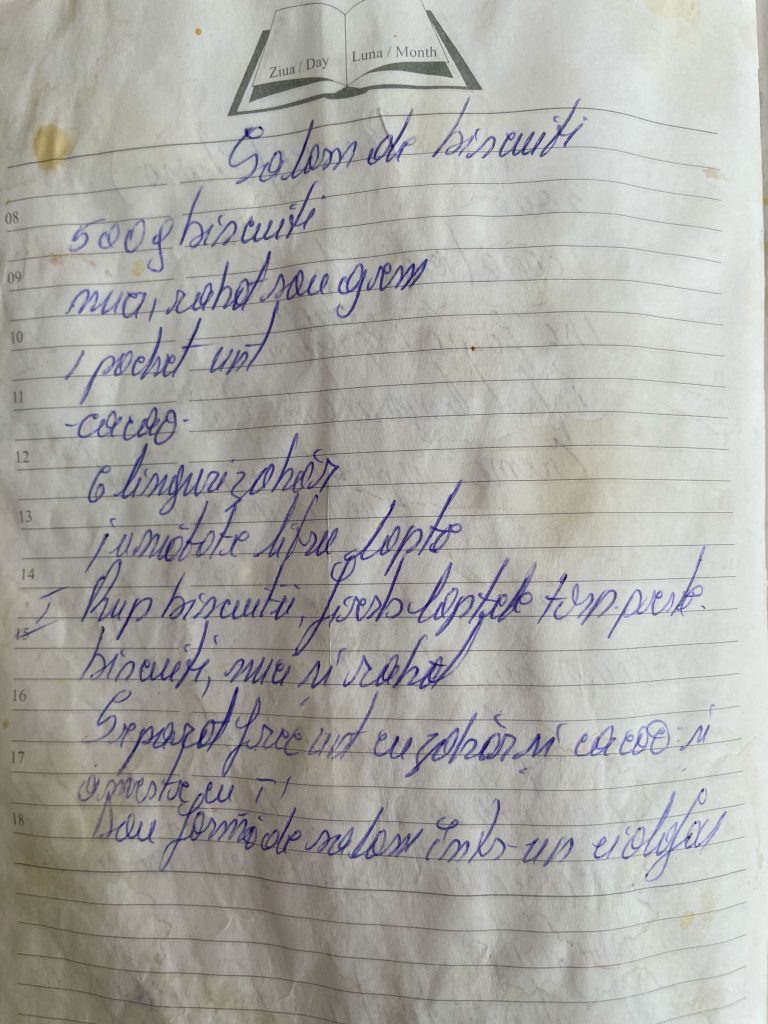 Ziua / Day Luna / Month
Salam de biscuiti
08
500g biscuiti
09
nuci, rahat sau grem
10
1 pachet unt
11
-cacao-
12
6 linguri zahăr
13
jumătate litru lapte
14
I Rup biscuitii, fierb laptele torn peste
15
biscuiti, nuci si rahat
16
Separat frec unt cu zahăr si cacao si
17
amestec cu I
18
Dau formă de salam într-un celofan